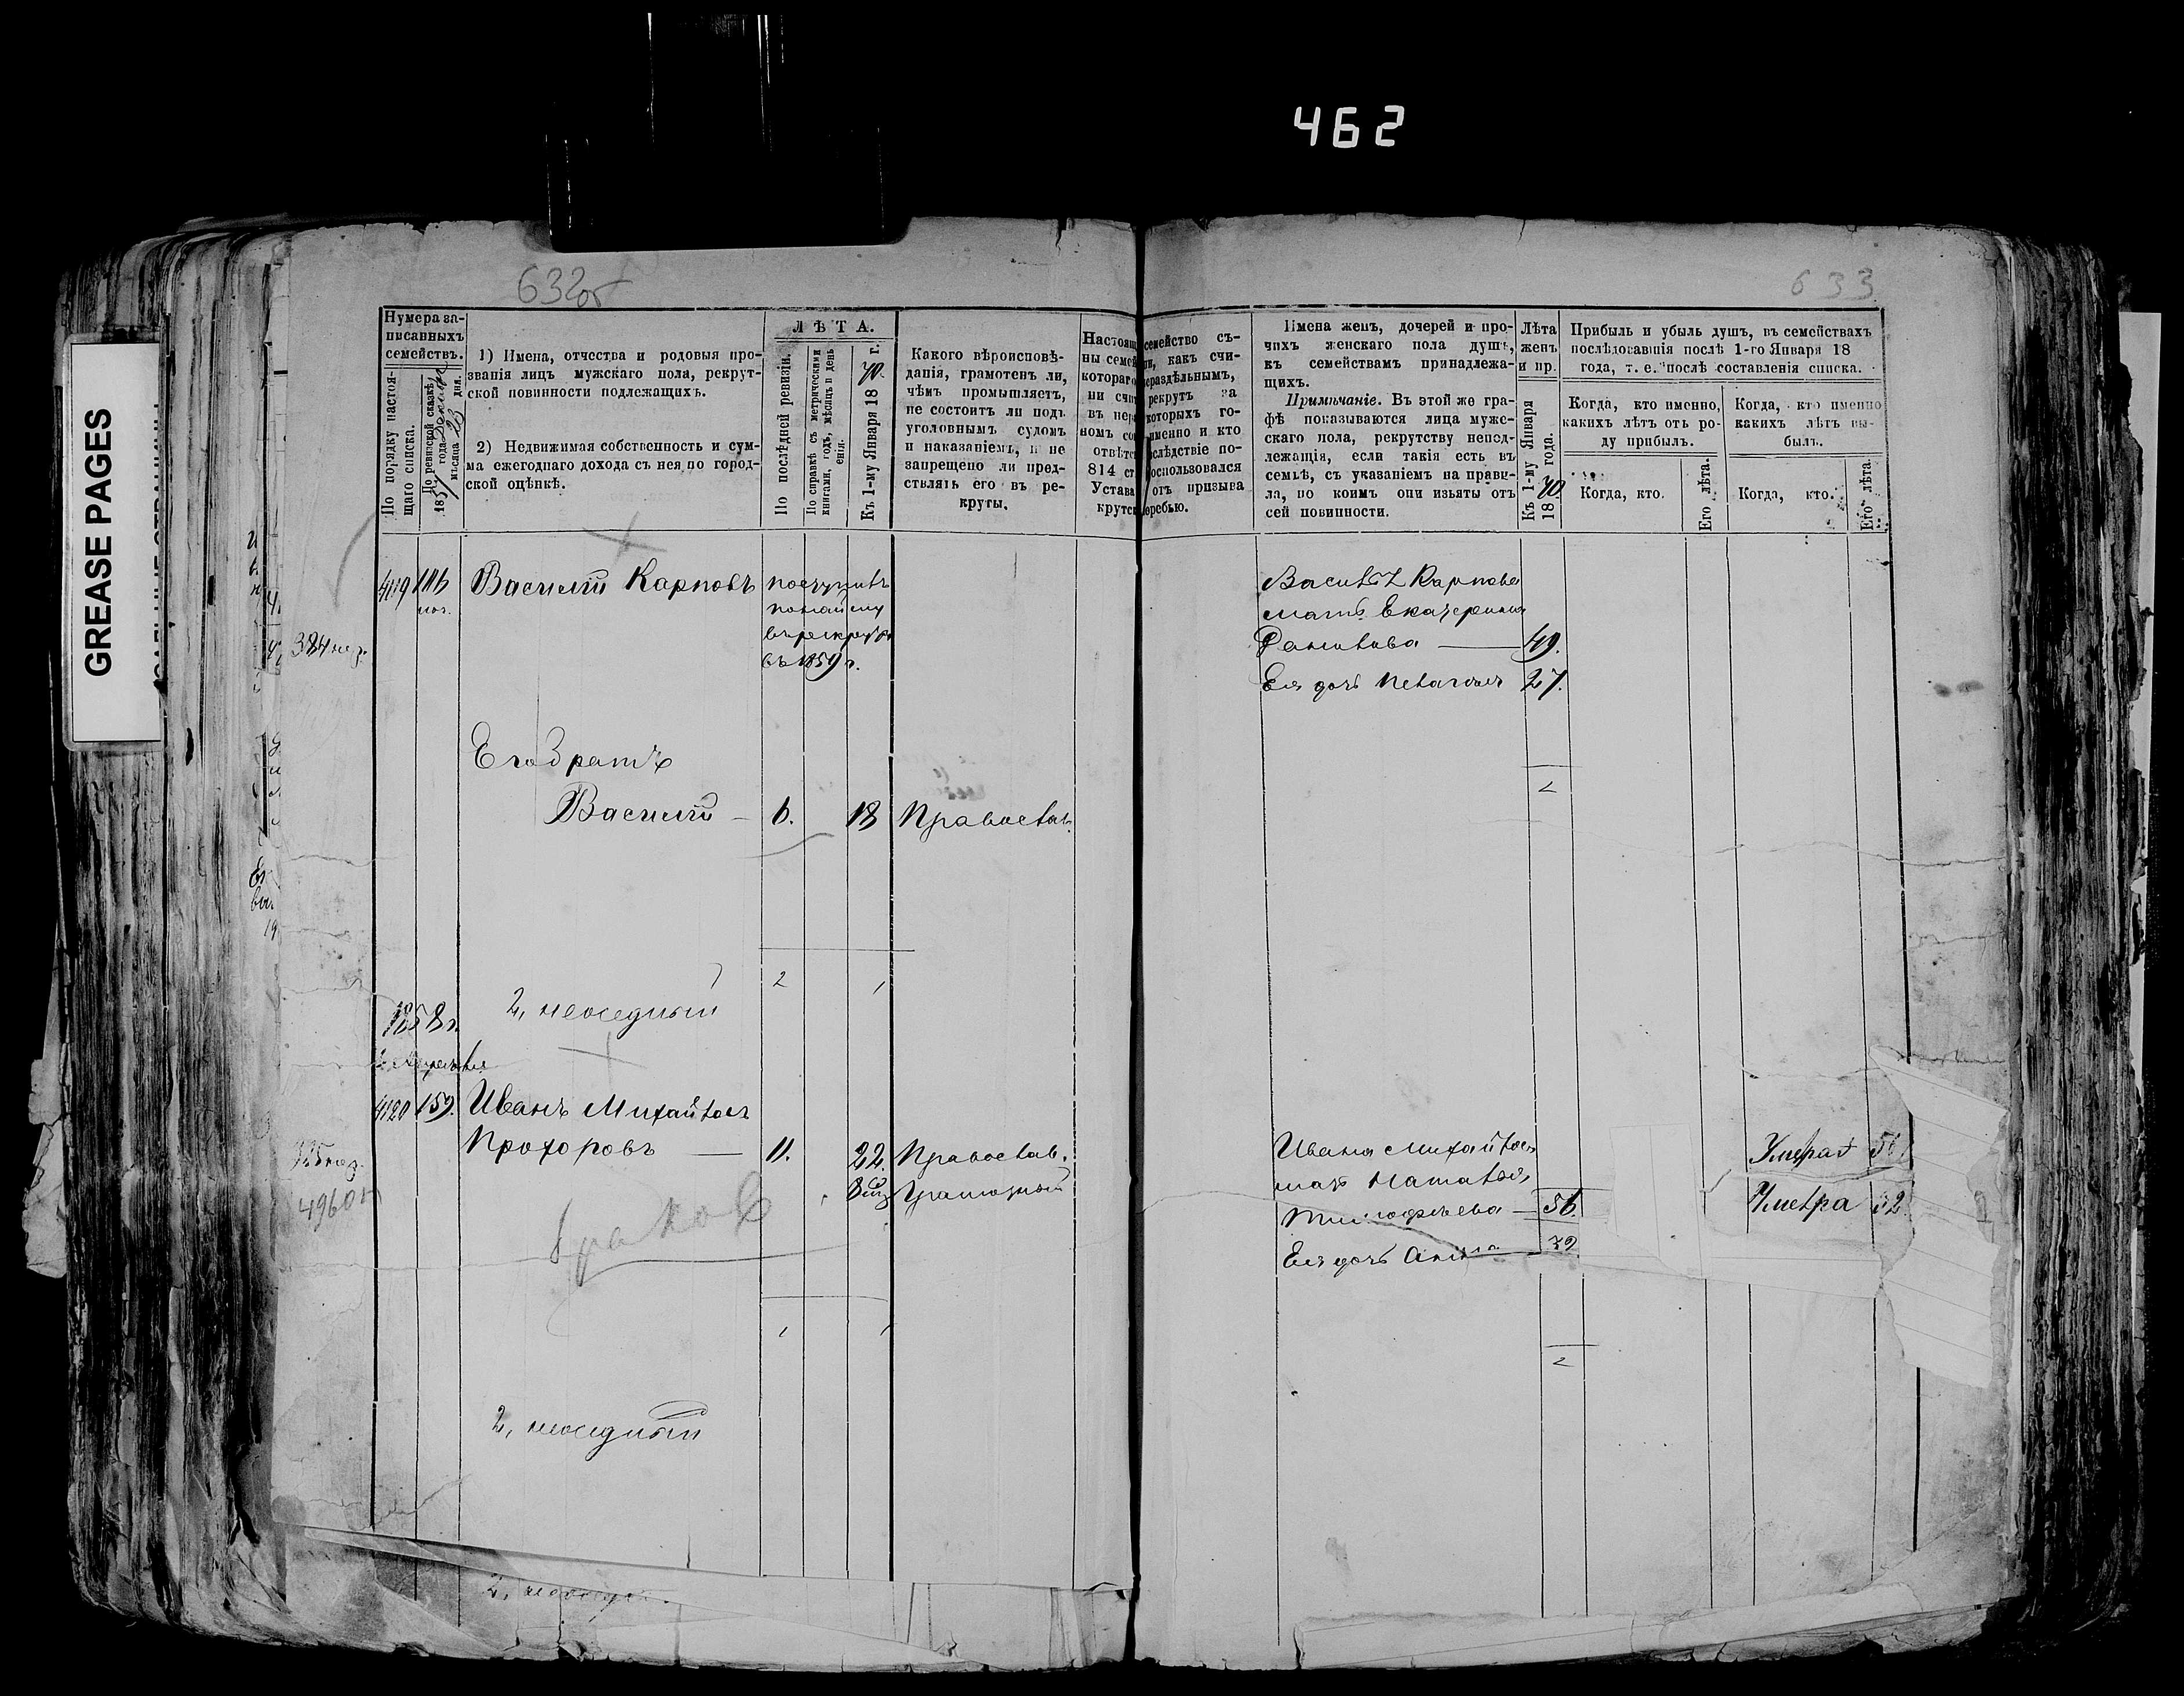 462
GREASE PAGES
632об
633
Нумера за-
писанныхъ
семействъ.
По порядку настоя-
щаго списка.
По ревизской сказкѣ
1857 года
мѣсяца 23 дня.
1) Имена, отчества и родовыя про-
званія лицъ мужскаго пола, рекрут-
ской повинности подлежащихъ.
2) Недвижимая собственность и сум-
ма ежегоднаго дохода съ нея по город-
ской оцѣнкѣ.
ЛѢТА.
По послѣдней ревизіи.
По справкѣ съ метрическими
книгами, годъ, мѣсяцъ и день
Къ 1-му Января 1870. г.
Какого вѣроисповѣ-
данія, грамотенъ ли,
чѣмъ промышляетъ,
не состоитъ ли подъ
уголовнымъ судомъ
и наказаніемъ, и не
запрещено ли пред-
ствлять его въ ре-
круты.
Настоящ семейство съ-
ны семей ли, какъ счи-
котораго нераздѣльнымъ,
ни счит рекрутъ за
въ пер которыхъ го-
номъ со именно и кто
отвѣтс слѣдствіе по-
814 ст оспользовался
Устава отъ призыва
крутс жребью.
Имена женъ, дочерей и про-
чихъ женскаго пола душъ,
къ семействамъ принадлежа-
щихъ.
Примѣчаніе. Въ этой же гра-
фѣ показываются лица муже-
скаго пола, рекрутству непод-
лежащія, если такія есть въ
семьѣ, съ указаніемъ на прави-
ла, по коимъ они изъяты отъ
сей повинности.
Лѣта
женъ
и пр.
Къ 1-му Января
1870 года.
Прибыль и убыль душъ, въ семействахъ
послѣдовавшія послѣ 1-го Января 18
года, т. е. послѣ составленія списка.
Когда, кто именно,
какихъ лѣтъ отъ ро-
ду прибылъ.
Когда, кто именно
какихъ лѣтъ вы-
былъ.
Когда, кто.
Его лѣта.
Когда, кто.
Его лѣта.
Василій Карповъ
поступилъ
въ рекруты
въ 1859 г.
Василія Карпова
мать Екатерина
49.
Ея дочь 27.
Его братъ
Василій 6. 18 Православ.
2
2 1
1858 г.
2, неоседлый
4120 159. Иванъ Михайловъ
Прохоровъ 11. 22. Православ.
Грамотный
4960
Ивана Михайлова
мать Наталья
Тимофѣева 56.
Ея дочь Анна 32
Умерла
Умерла 32
1 1
2
2, неоседлый